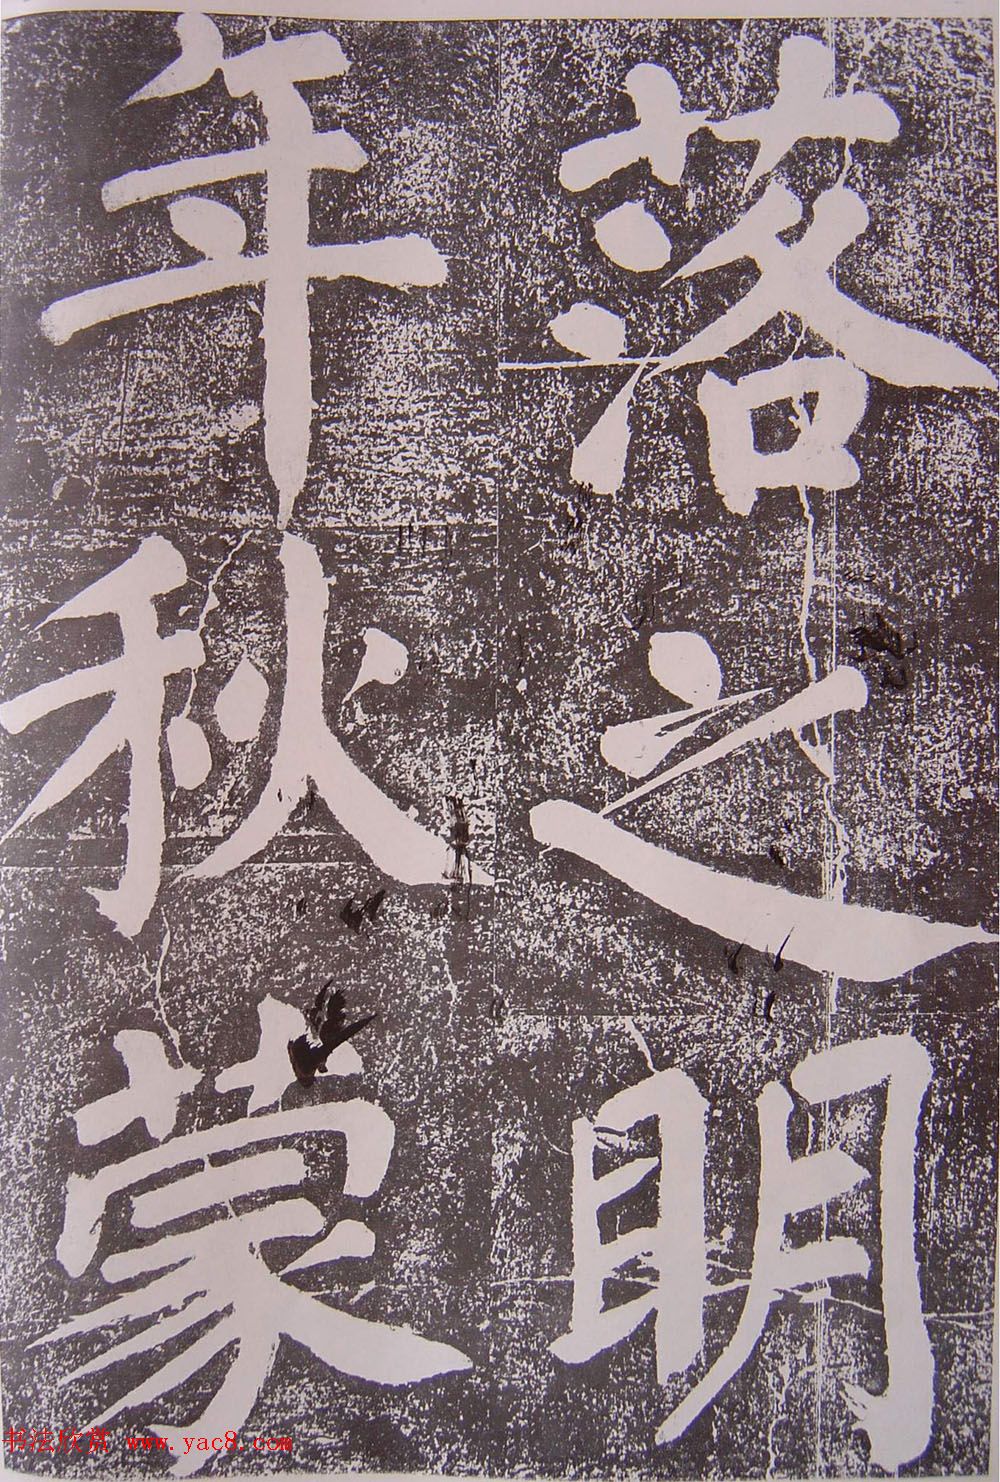 落之明
年秋蒙
书法欣赏 www.yac8.com